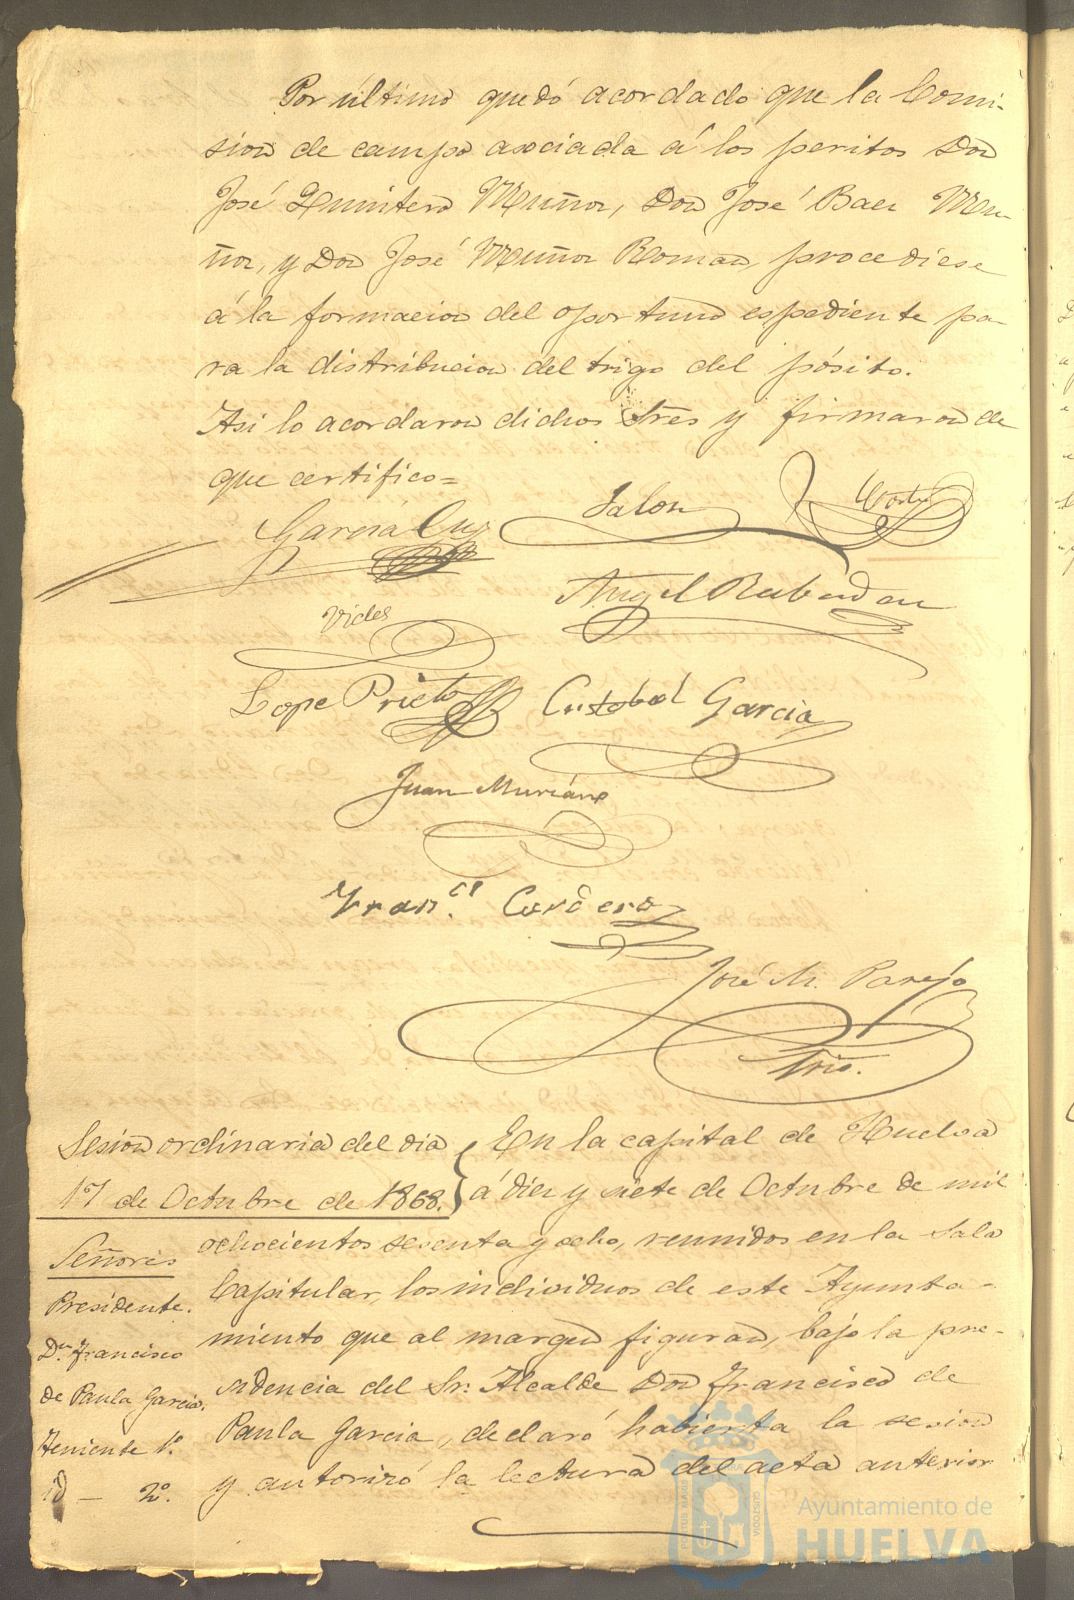 Por último quedó acordado que la Comi-
sion de campo asociada á los peritos Don
José Quintero Muñoz, Don José Baez Mu-
ñoz, y Don José Muñoz Roman, procediese
á la formacion del oportuno espediente pa-
ra la distribucion del trigo del pósito.
Asi lo acordaron dichos Sres y firmaron de
que certifico=
Garcia Cruz
Jalon
Vides
Angel Rabadan
Lope Prieto
Cristobal Garcia
Juan Muriano
Fran.co Cordero
José M. Parejo
Srio.
Sesion ordinaria del dia
17 de Octubre de 1868.
Señores
Presidente.
Dn. Francisco
de Paula Garcia.
Teniente 1º.
Id — 2º.
En la capital de Huelva
á diez y siete de Octubre de mil
ochocientos sesenta y ocho, reunidos en la Sala
Capitular, los individuos de este Ayunta-
miento que al margen figuran, bajo la pre-
sidencia del Sr. Alcalde Don Francisco de
Paula Garcia, declaró habierta la sesion
y autorizó la lectura del acta anterior
Ayuntamiento de
HUELVA